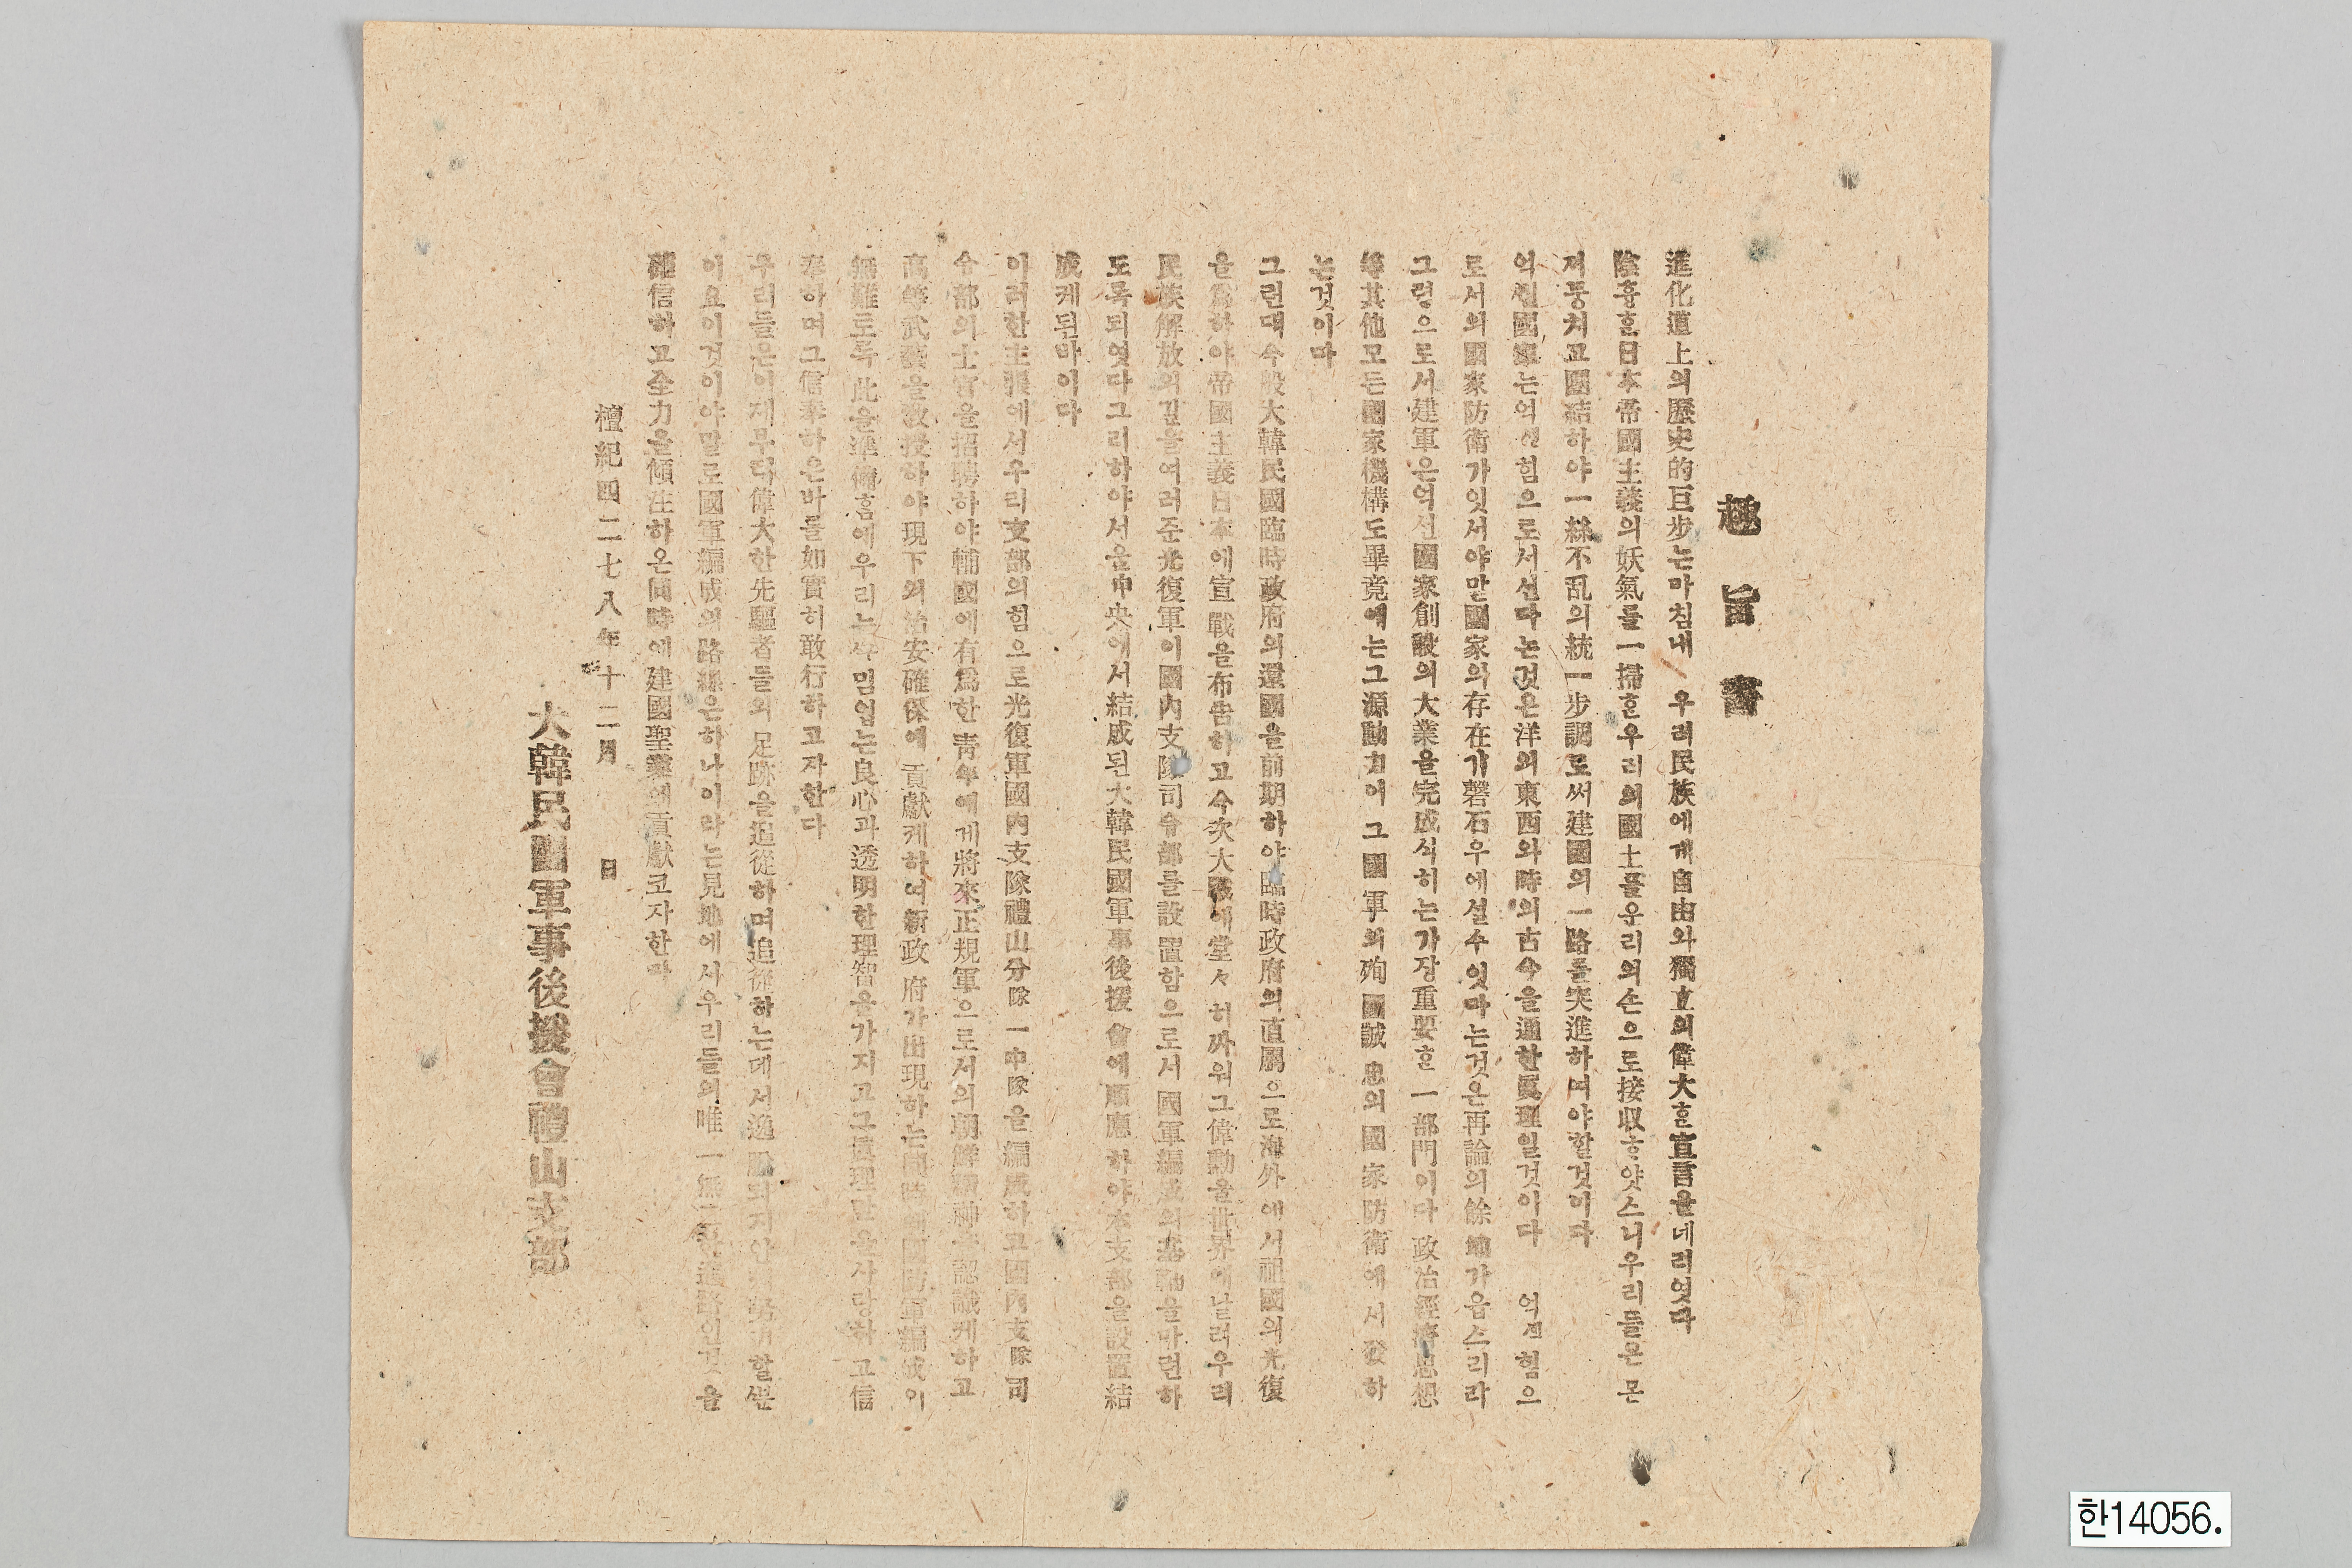 趣旨書
進化道上의歷史的巨步는마침내 우리民族에게自由와獨立의偉大흔宣言을네리엿다
陰흉흔日本帝國主義의妖氣를一掃흔우리의國土를우리의손으로接収ᄒᆞ얏스니우리들은몬
저뭉치고團結하야一絲不乱의統一步調로써建國의一路를突進하며야할것이다
억센國家는억센힘으로서선다는것은洋의東西와時의古今을通한眞理일것이다 억센힘으
로서의國家防衛가잇서야말國家의存在가磐石우에설수잇다는것은再論의餘地가읍스리라
그럼으로서建軍은억센國家創設의大業을完成식히는가장重要흔一部門이다政治經濟思想
等其他모든國家機構도畢竟에는그源動力이그國軍의殉國誠忠의國家防衛에서發하
는것이다
그런대今般大韓民國臨時政府의還國을前期하야臨時政府의直屬으로海外에서祖國의光復
을爲하야帝國主義日本에宣戰을布告하고今次大戰에堂々히싸워그偉勳을世界에날려우리
民族解放의길을여러준光復軍이國內支隊司令部를設置함으로서國軍編成의基軸을마련하
도록되엿다그리하야서울中央에서結成된大韓民國軍事後援會에順應하야本支部을設置結
成케된바이다
이러한主張에서우리支部의힘으로光復軍國內支隊禮山分隊一中隊을編成하고國內支隊司
令部의士官을招聘하야輔國에有爲한靑年에게將來正規軍으로서의朝鮮精神을認識케하고
高等武藝을敎授하야現下의治安確保에貢獻케하여新政府가出現하는同時에國防軍編成이
無難토록此을準備홈에우리는싸밈업는良心과透明한理智을가지고그眞理만을사랑하고信
奉하며그信奉하은바를如實히敢行하고자한다
우리들은이제무릇偉大한先驅者들의足跡을追從하며追從하는데서逸脫되지안코努力할뿐
이요이것이야말로國軍編成의路線은하나이라는見地에서우리들의唯一無二한進路인것을
確信하고全力을傾注하온同時에建國聖業에貢獻코자한다
檀紀四二七八年十二月 日
大韓民國軍事後援會禮山支部
한14056.